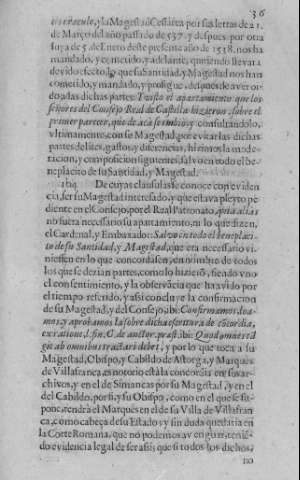 36
toraculo, y la Magestad Cesarea por sus letras de 21.
de Março del año passado de 537. y despues por otra
suya de 5. de Enero deste presente año de 1538. nos ha
mandado, y cometido, y adelante, queriendo llevar a
devido efecto lo que su Santidad, y Magestad nos han
cometido, y mandado, y prosigue, despues de aver oido
a las dichas partes: Y visto el apartamiento que los
señores del Consejo Real de Castilla hizieron, sobre el
primer parecer, que de acà se embiò, y consultandolo,
ultimamente, con su Magestad, por evitar las dichas
partes de lites, gastos, y diferencias, hizimos la moderacion,
y composicion siguientes, salvo en todo el beneplacito
de su Santidad, y Magestad.
104 De cuyas clausulas se conoce con evidencia,
ser su Magestad interesado, y que estava pleyto pendiente
en el Consejo, por el Real Patronato,
no fuera necessario su apartamiento, ni lo que dizen,
el Cardenal, y Embaxador: Salvo en todo el beneplacito
de su Santidad, y Magestad, que era necessario viniessen
en lo que concordassen, en nombre de todos
los que se dezian partes, como lo hizierõ, siendo uno
el consentimiento, y la observãcia que ha avido por
el tiempo referido, y assi concluye la confirmacion
de su Magestad, y del Consejo, ibi: Confirmamos, loamos,
y aprobamos la sobredicha escritura de cõcordia,
ex ratione, l. fin. C. de auctor. præst. ibi: Quod omnes tãgit
ab omnibus tractari debet, y por lo que toca a su
Magestad, Obispo, y Cabildo de Astorga, y Marques
de Villafranca, es notorio està la concordia en sus archivos,
y en el de Simancas por su Magestad, y en el
del Cabildo, por si, y su Obispo, como en el que se supone,
tendrà el Marques en el de su Villa de Villafranca,
como cabeça de su Estado: y sin duda quedaria en
la Corte Romana, que no podemos averiguar, teniẽdo
evidencia legal de ser assi; que si todos los dichos,
no